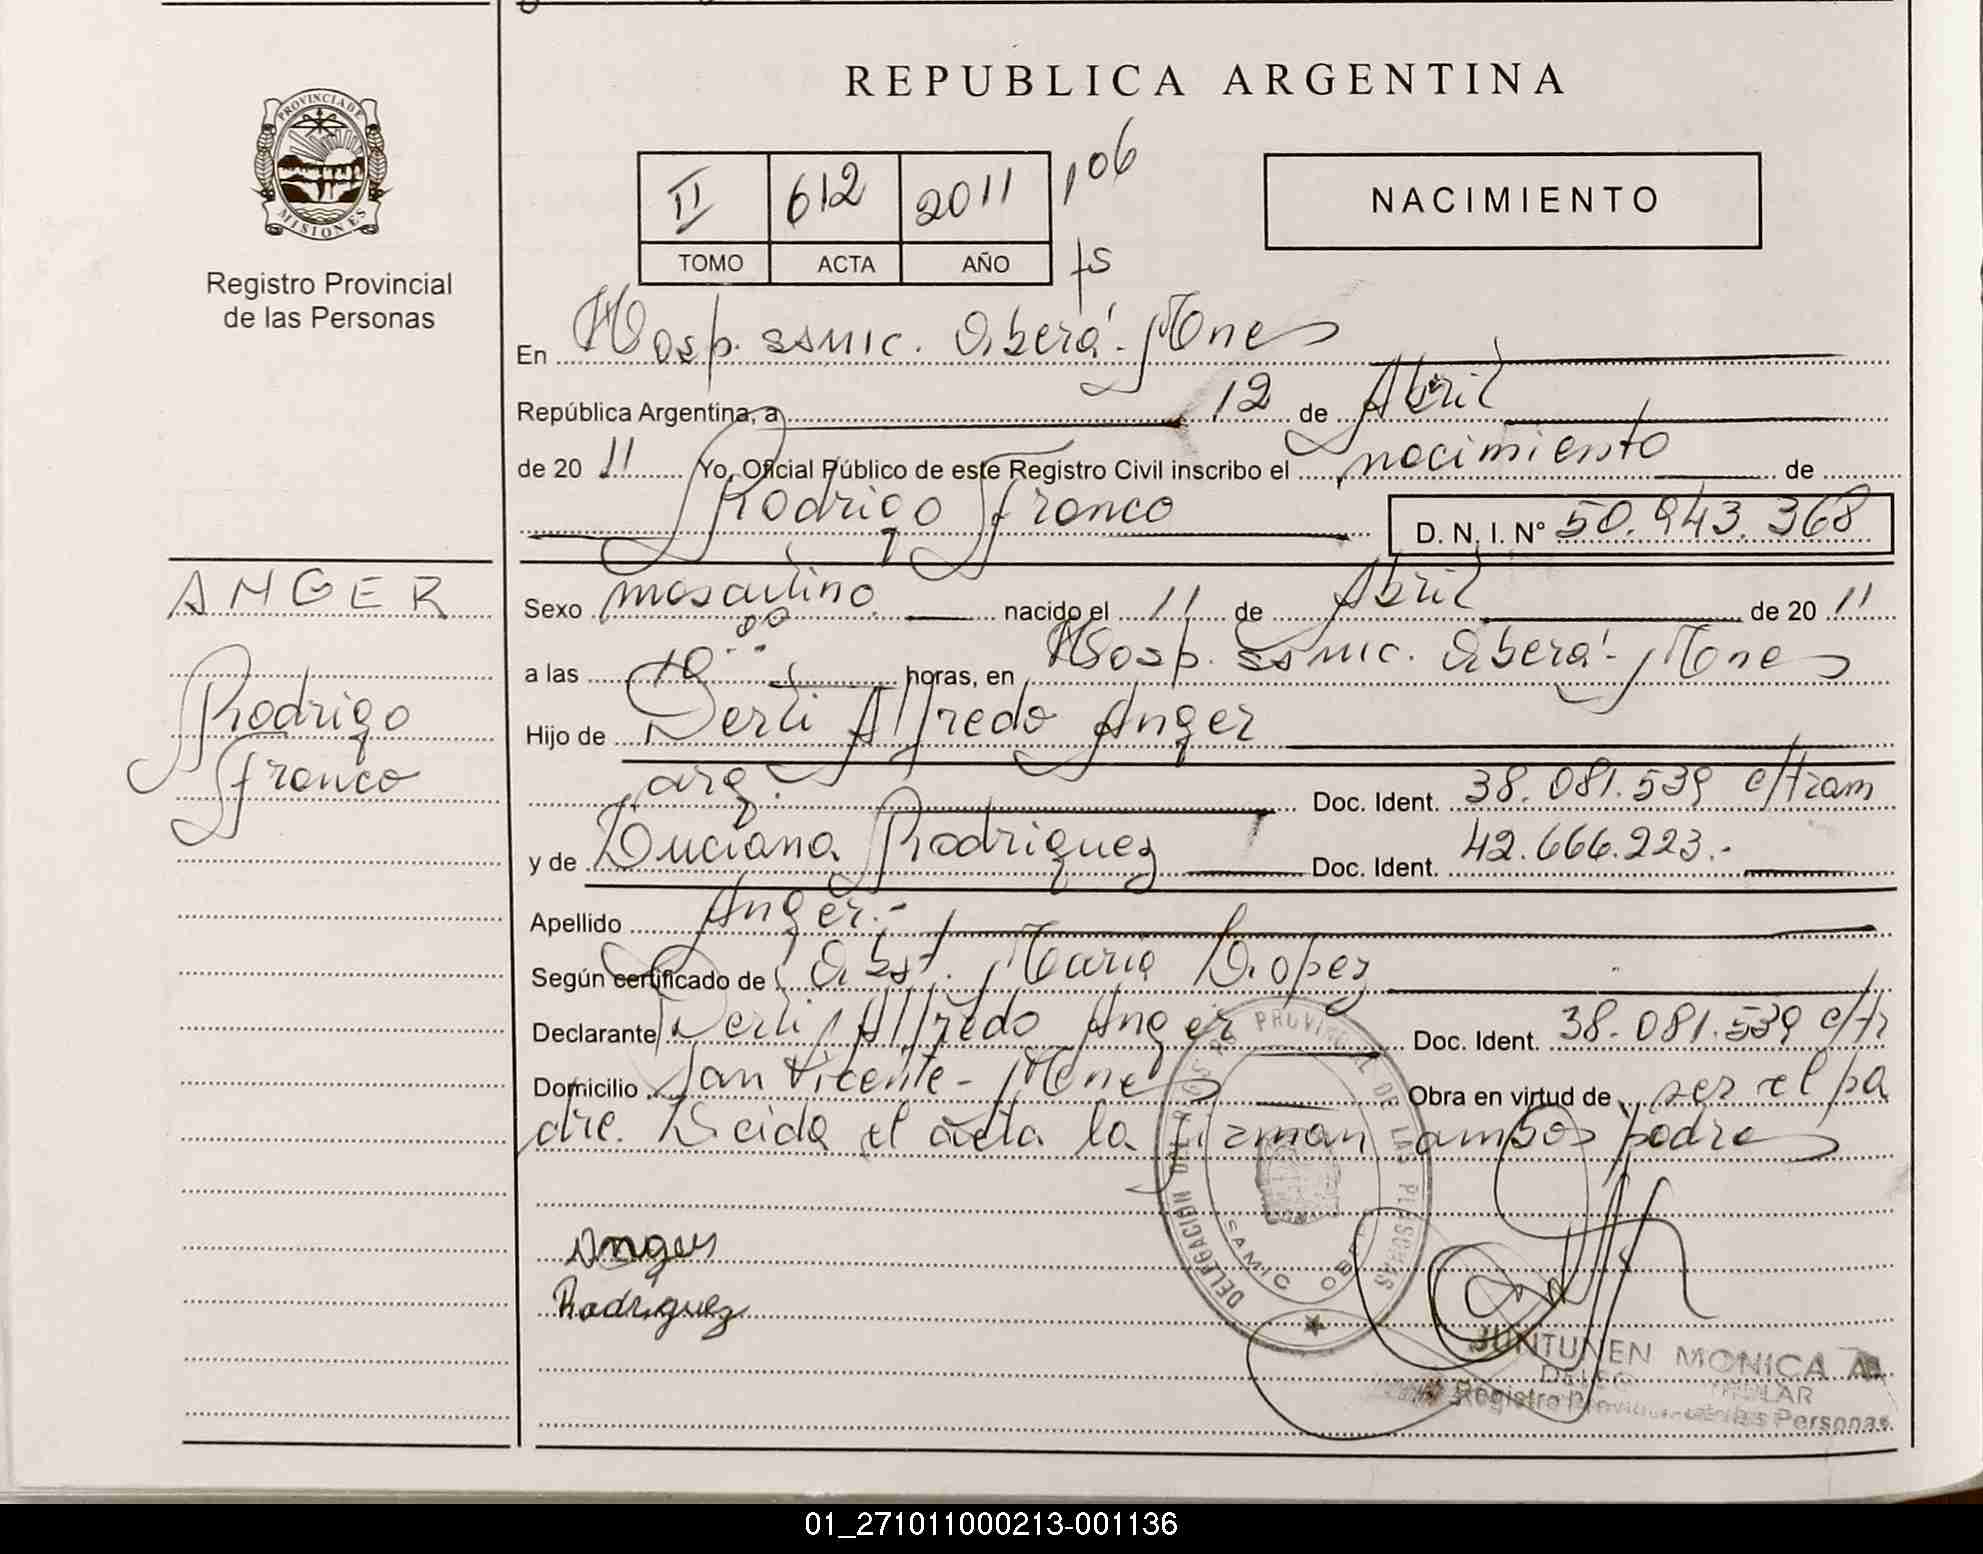 REPUBLICA ARGENTINA
PROVINCIA DE
MISIONES
Registro Provincial
de las Personas
II 612 2011 106
TOMO ACTA AÑO fs
NACIMIENTO
En Hosp. SAMIC. Oberá - Mnes
República Argentina, a 12 de Abril
de 20 11 Yo, Oficial Público de este Registro Civil inscribo el nacimiento de
Rodrigo Franco D. N. I. N° 50.943.368
ANGER
Rodrigo
Franco
Sexo masculino. nacido el 11 de Abril de 20 11
a las 10 00 horas, en Hosp. SAMIC. Oberá - Mnes
Hijo de Derli Alfredo Anger
arg. Doc. Ident. 38.081.539 c/tram
y de Luciana Rodriguez Doc. Ident. 42.666.223.-
Apellido Anger.-
Según certificado de Obst. Maria Lopez
Declarante Derli Alfredo Anger Doc. Ident. 38.081.539 c/tr
Domicilio San Vicente - Mnes Obra en virtud de ser el pa
dre. Leida el acta la firman ambos padres
Anger
Rodriguez
DELEGACION PROVINCIAL DE LAS PERSONAS
SAMIC
JUNTUNEN MONICA A.
Registro Personas
01_271011000213-001136